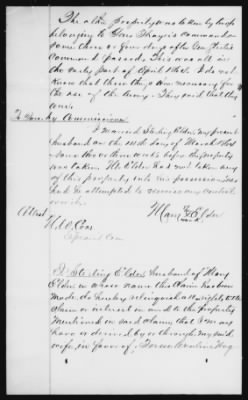 The other property was taken by troops
belonging to Gen Thayer's command
some three or four days after Con Porters
command passed. This was all in
the early part of April 1864. I do not
know that these things were necessary for
the use of the Army. They said that they
were.
To        by Commissioner
I married Sterling Elder, my present
husband on the 11th day of March 1864
some two or three weeks before this property
was taken. Mr Elder had not taken any
of this property into his possession, nor
had he attempted to exercise any control
over it.
Mary E. Elder
mark
Attest
Special Com
I, Sterling Elder, husband of Mary
Elder in whose name this claim has been
made do hereby relinquish all rights title
claim or interest in and to the property
mentioned in said claim, that I may
have or derived by or through my said
wife, in favor of,